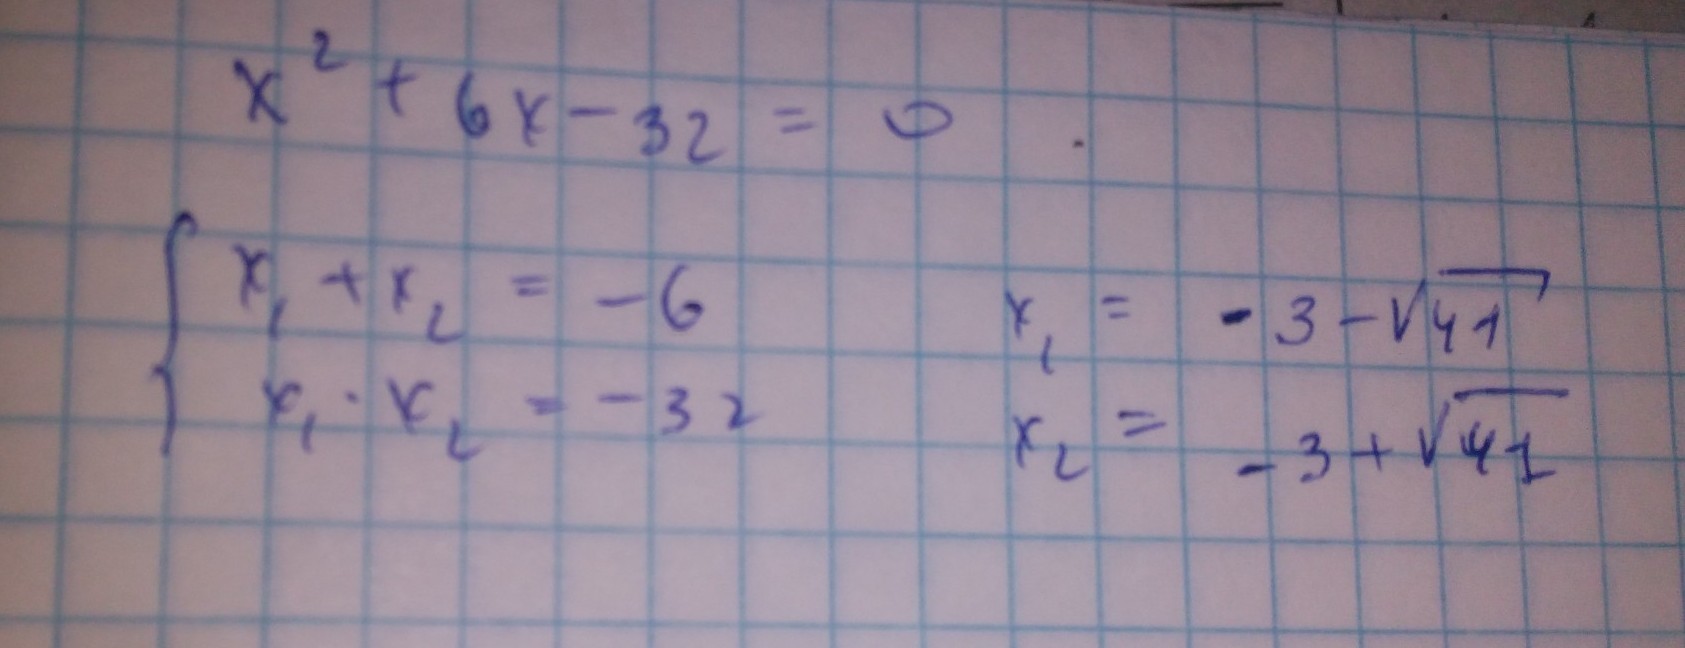 x² + 6x - 32 = 0
{ x₁ + x₂ = -6
x₁ · x₂ = -32
x₁ = -3 - √41
x₂ = -3 + √41